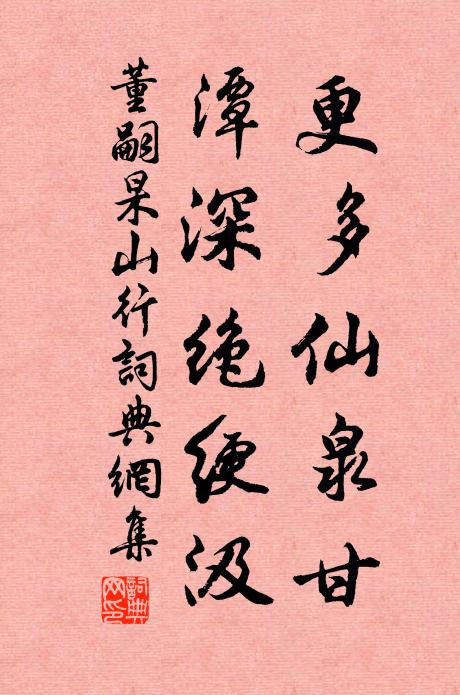 更多仙泉甘
潭深绝綆汲
董嗣杲山行詞典網集
詞典網印